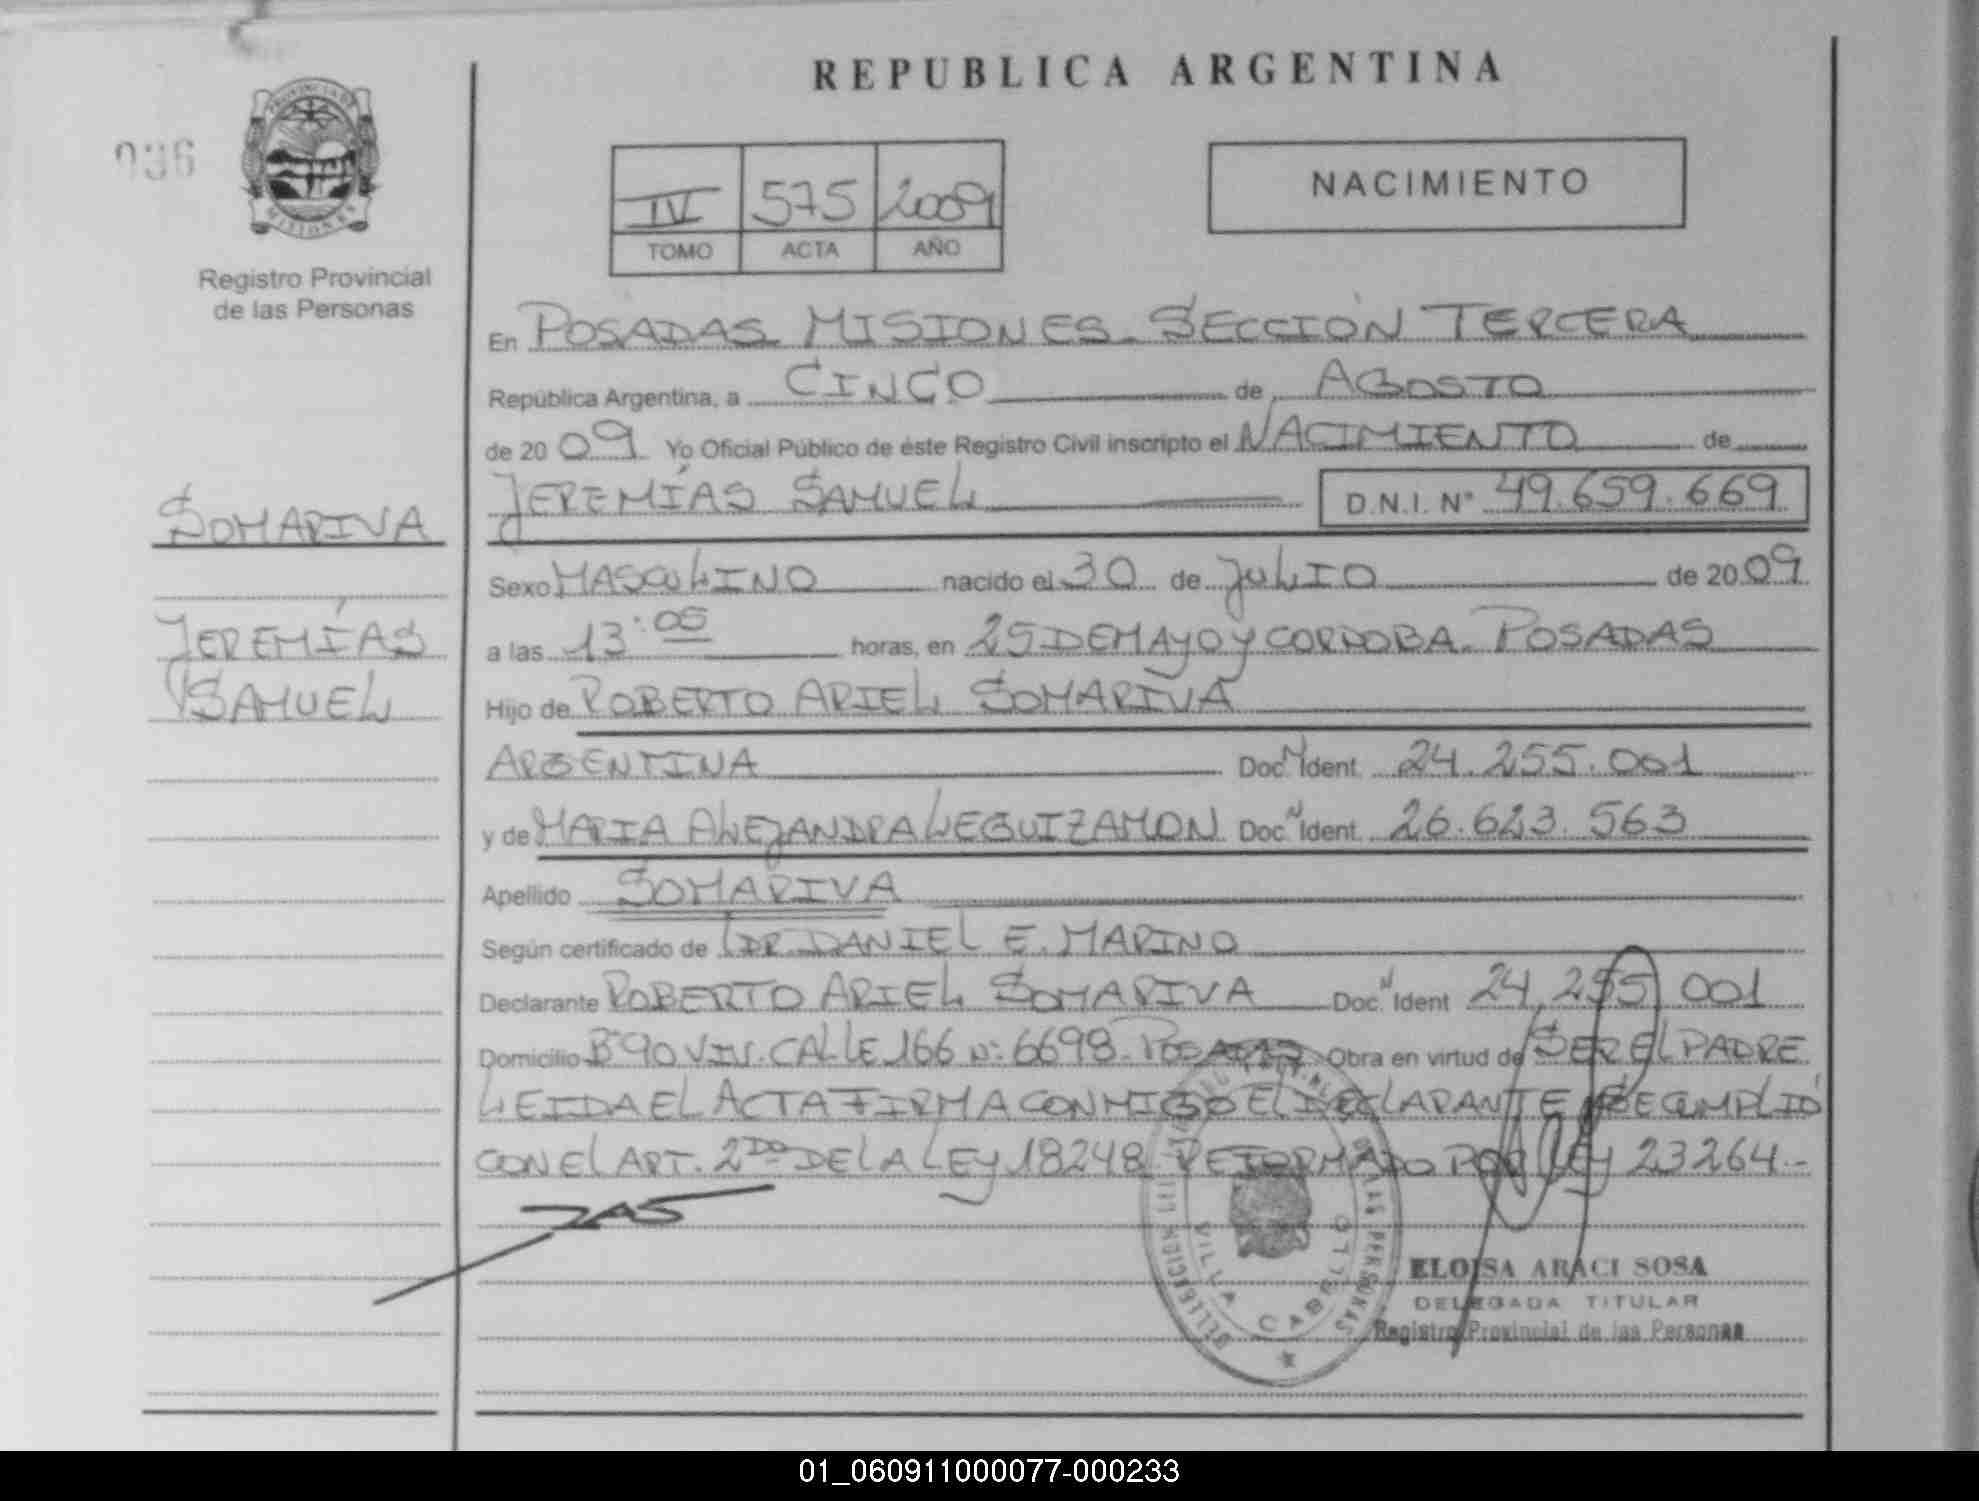 REPUBLICA ARGENTINA
036
PROVINCIA DE
MISIONES
Registro Provincial
de las Personas
IV 575 2009
TOMO ACTA AÑO
NACIMIENTO
En POSADAS MISIONES. SECCIÓN TERCERA
República Argentina, a CINCO de AGOSTO
de 2009 Yo Oficial Público de éste Registro Civil inscripto el NACIMIENTO de
JEREMÍAS SAMUEL D.N.I. N° 49.659.669
SOMARIVA
JEREMÍAS
SAMUEL
Sexo MASCULINO nacido el 30 de JULIO de 2009
a las 13:05 horas, en 25 DE MAYO Y CORDOBA. POSADAS
Hijo de ROBERTO ARIEL SOMARIVA
ARGENTINA Doc. N Ident. 24.255.001
y de MARIA ALEJANDRA LEGUIZAMON Doc. N Ident. 26.623.563
Apellido SOMARIVA
Según certificado de DR. DANIEL E. MARINO
Declarante ROBERTO ARIEL SOMARIVA Doc. N Ident 24.255.001
Domicilio B° 90 VIV. CALLE 166 N: 6698. POSADAS Obra en virtud de SER EL PADRE
LEIDA EL ACTA FIRMA CONMIGO EL DECLARANTE SE CUMPLIÓ
CON EL ART. 2DO DE LA LEY 18248 REFORMADO POR LEY 23264.-
VILLA CABELLO
DE LAS PERSONAS
ELOISA ARACI SOSA
DELEGADA TITULAR
Registro Provincial de las Personas
01_060911000077-000233